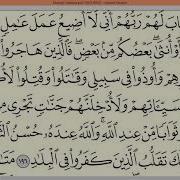 جَابَ لَهُمْ رَبُّهُمْ أَنِّي لَآ أُضِيعُ عَمَلَ عَٰمِلٍ
أَوْ أُنثَىٰ بَعْضُكُم مِّنۢ بَعْضٍ فَٱلَّذِينَ هَاجَرُوا۟
رِهِمْ وَأُوذُوا۟ فِي سَبِيلِي وَقَٰتَلُوا۟ وَقُتِلُوا۟
سَيِّـَٔاتِهِمْ وَلَأُدْخِلَنَّهُمْ جَنَّٰتٍ تَجْرِي
ثَوَابًا مِّنْ عِندِ ٱللَّهِ وَٱللَّهُ عِندَهُۥ حُسْنُ
نَّكَ تَقَلُّبُ ٱلَّذِينَ كَفَرُوا۟ فِي ٱلْبِلَٰدِ ١٩٦ مَتَٰ